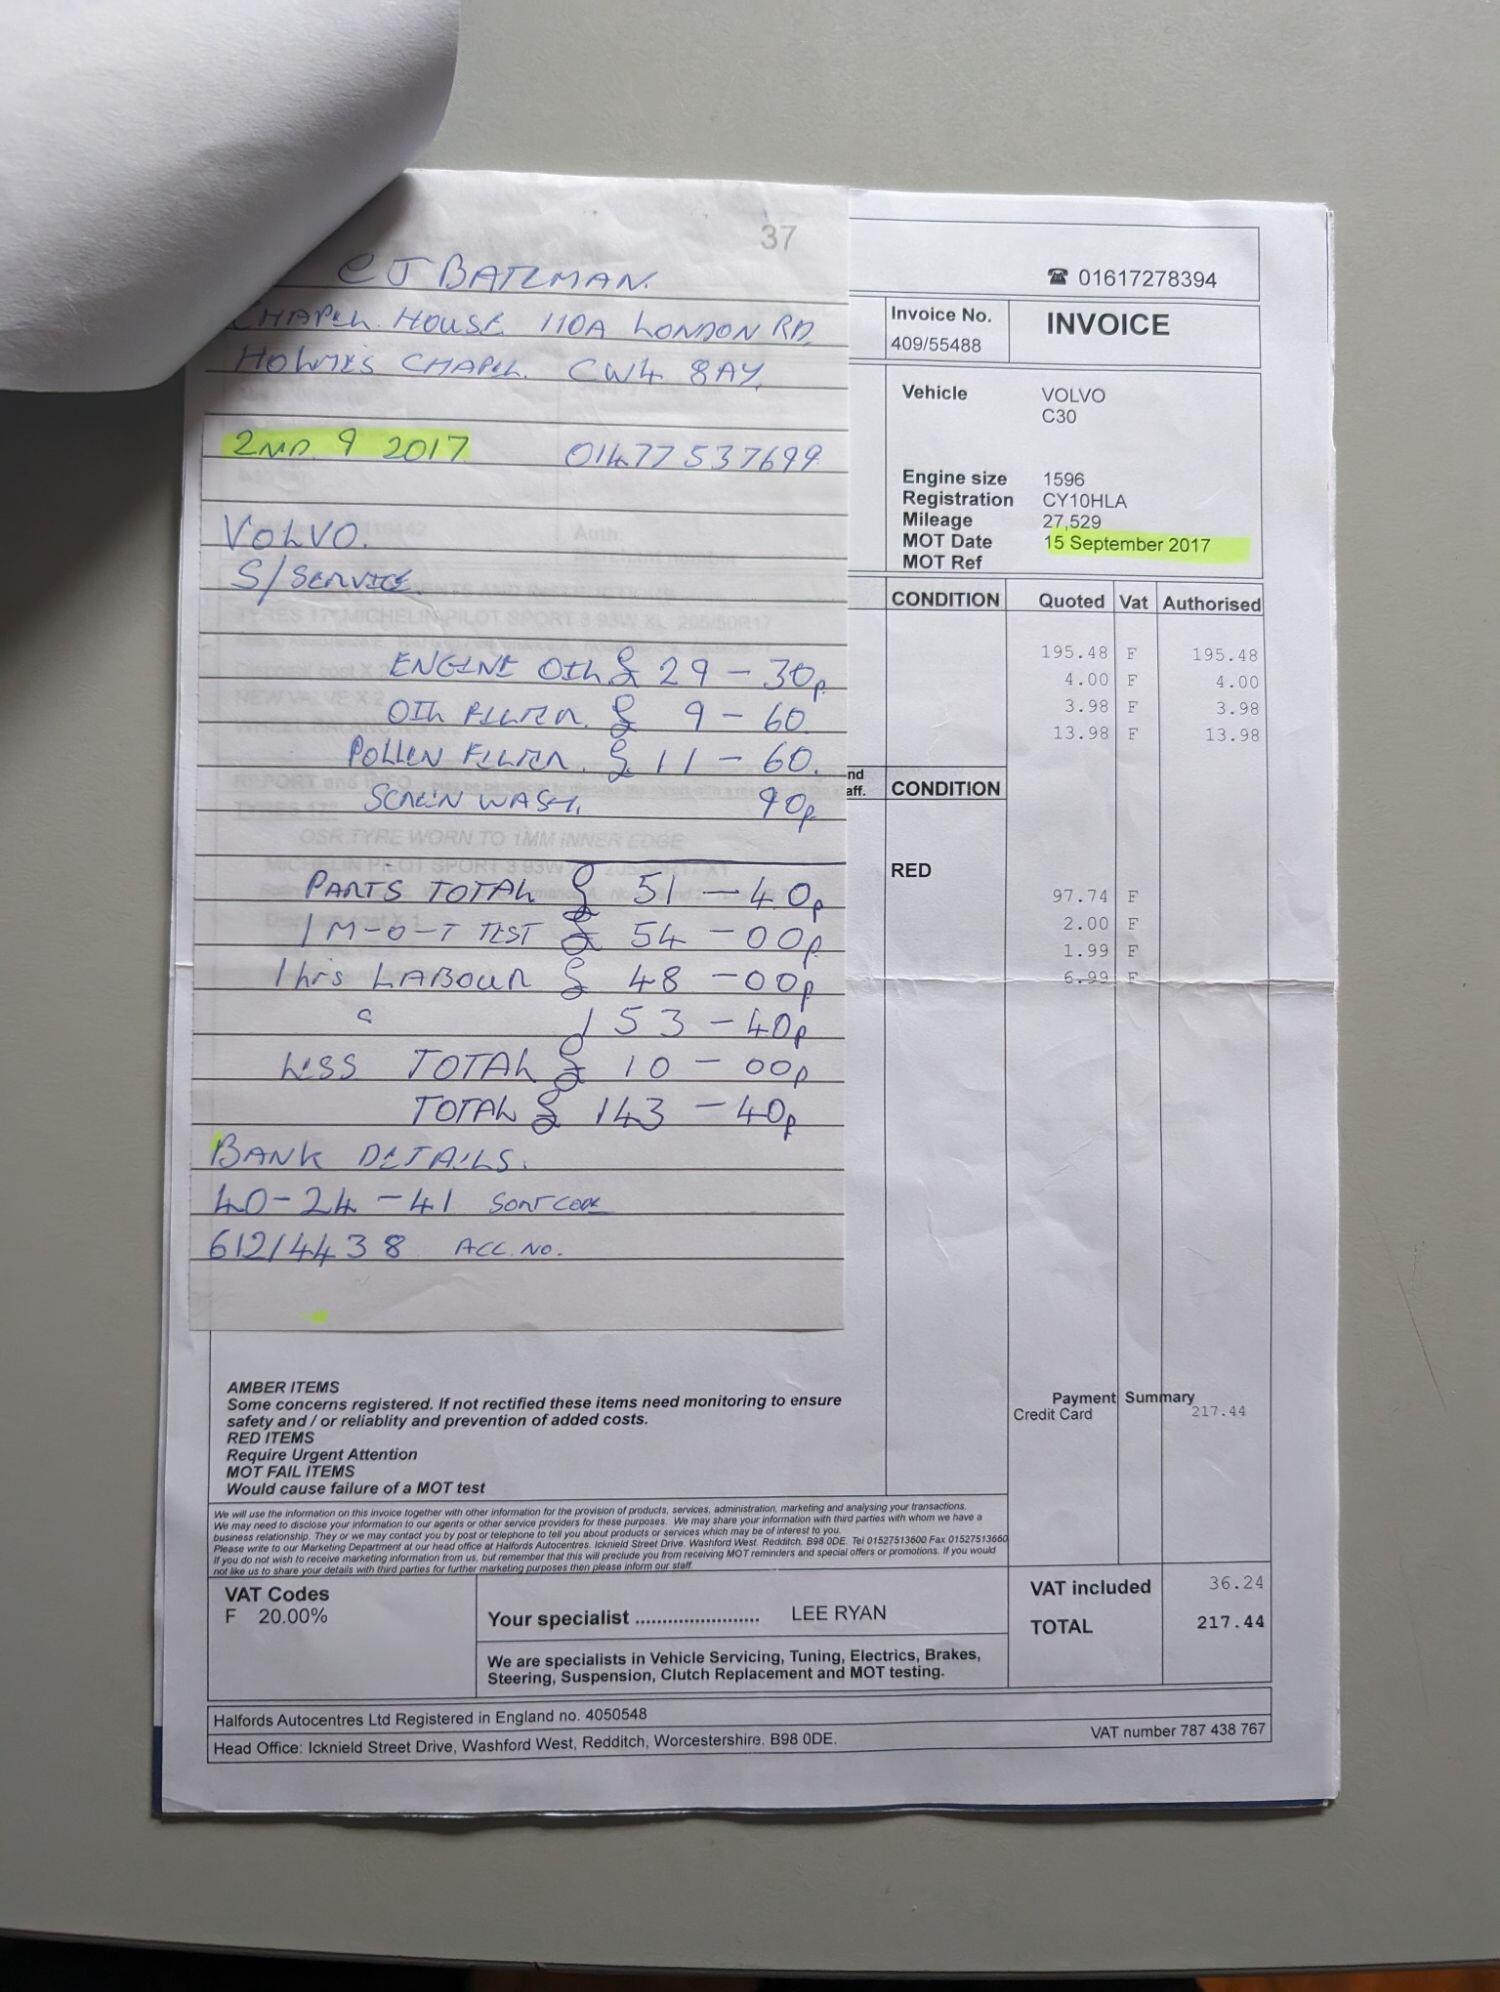 37
C J BATEMAN.
CHAPEL HOUSE 110A LONDON RD,
HOLMES CHAPEL. CW4 8AY.
2ND. 9 2017 01477 537699
VOLVO.
S/SERVICE.
ENGINE OIL £ 29 - 30p
OIL FILTER. £ 9 - 60
POLLEN FILTER. £ 11 - 60.
SCREEN WASH. 90p
PARTS TOTAL £ 51 - 40p
1 M-O-T TEST £ 54 - 00p
1 hrs LABOUR £ 48 - 00p
153 - 40p
LESS TOTAL £ 10 - 00p
TOTAL £ 143 - 40p
BANK DETAILS.
40-24-41 SORT CODE
61214438 ACC. NO.
☎ 01617278394
Invoice No. INVOICE
409/55488
Vehicle VOLVO
C30
Engine size 1596
Registration CY10HLA
Mileage 27,529
MOT Date 15 September 2017
MOT Ref
CONDITION Quoted Vat Authorised
TYRES 17" MICHELIN PILOT SPORT 3 93W XL 205/50R17 195.48 F 195.48
4.00 F 4.00
NEW VALVE X 2 3.98 F 3.98
13.98 F 13.98
REPORT and INFO
nd
aff. CONDITION
OSR TYRE WORN TO 1MM INNER EDGE
RED
97.74 F
2.00 F
1.99 F
6.99 F
AMBER ITEMS
Some concerns registered. If not rectified these items need monitoring to ensure
safety and / or reliablity and prevention of added costs.
RED ITEMS
Require Urgent Attention
MOT FAIL ITEMS
Would cause failure of a MOT test
Payment Summary
Credit Card 217.44
We will use the information on this invoice together with other information for the provision of products, services, administration, marketing and analysing your transactions.
We may need to disclose your information to our agents or other service providers for these purposes. We may share your information with third parties with whom we have a
business relationship. They or we may contact you by post or telephone to tell you about products or services which may be of interest to you.
Please write to our Marketing Department at our head office at Halfords Autocentres. Icknield Street Drive. Washford West. Redditch. B98 0DE. Tel 01527513600 Fax 01527513660
If you do not wish to receive marketing information from us, but remember that this will preclude you from receiving MOT reminders and special offers or promotions. If you would
not like us to share your details with third parties for further marketing purposes then please inform our staff.
VAT Codes
F 20.00%
Your specialist ....................... LEE RYAN
We are specialists in Vehicle Servicing, Tuning, Electrics, Brakes,
Steering, Suspension, Clutch Replacement and MOT testing.
VAT included 36.24
TOTAL 217.44
Halfords Autocentres Ltd Registered in England no. 4050548
Head Office: Icknield Street Drive, Washford West, Redditch, Worcestershire. B98 0DE.
VAT number 787 438 767